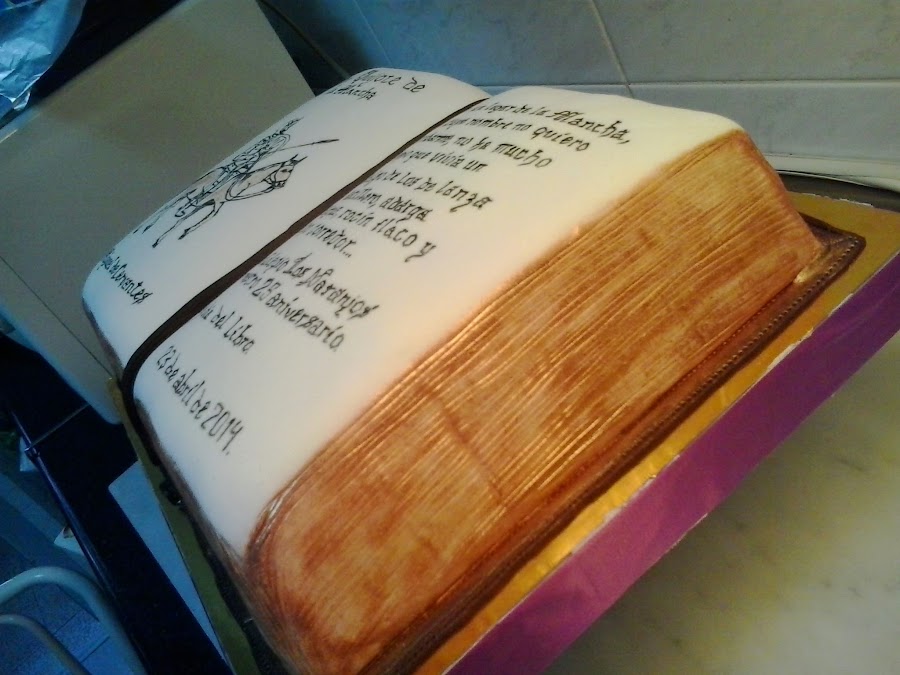 de
Mancha
de Cervantes
lugar de la Mancha,
nombre no quiero
no ha mucho
que vivía un
de los de lanza
adarga
rocín flaco y
corredor...
Los Naranjos
25 aniversario.
del libro.
23 de abril de 2014.